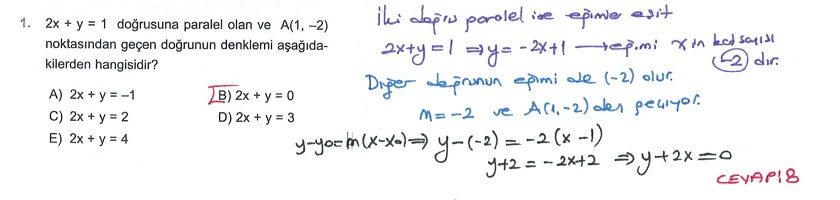 1. 2x + y = 1 doğrusuna paralel olan ve A(1, –2)
noktasından geçen doğrunun denklemi aşağıda-
kilerden hangisidir?
A) 2x + y = –1
B) 2x + y = 0
C) 2x + y = 2
D) 2x + y = 3
E) 2x + y = 4
İki doğru paralel ise eğimler eşit
2x+y=1 ⇒ y = -2x+1 → eğimi x in kat sayısı
(-2) dir.
Diğer doğrunun eğimi de (-2) olur.
m = -2 ve A(1,-2) den geçiyor.
y-y₀=m(x-x₀) ⇒ y-(-2) = -2(x-1)
y+2 = -2x+2 ⇒ y+2x=0
CEVAP:B